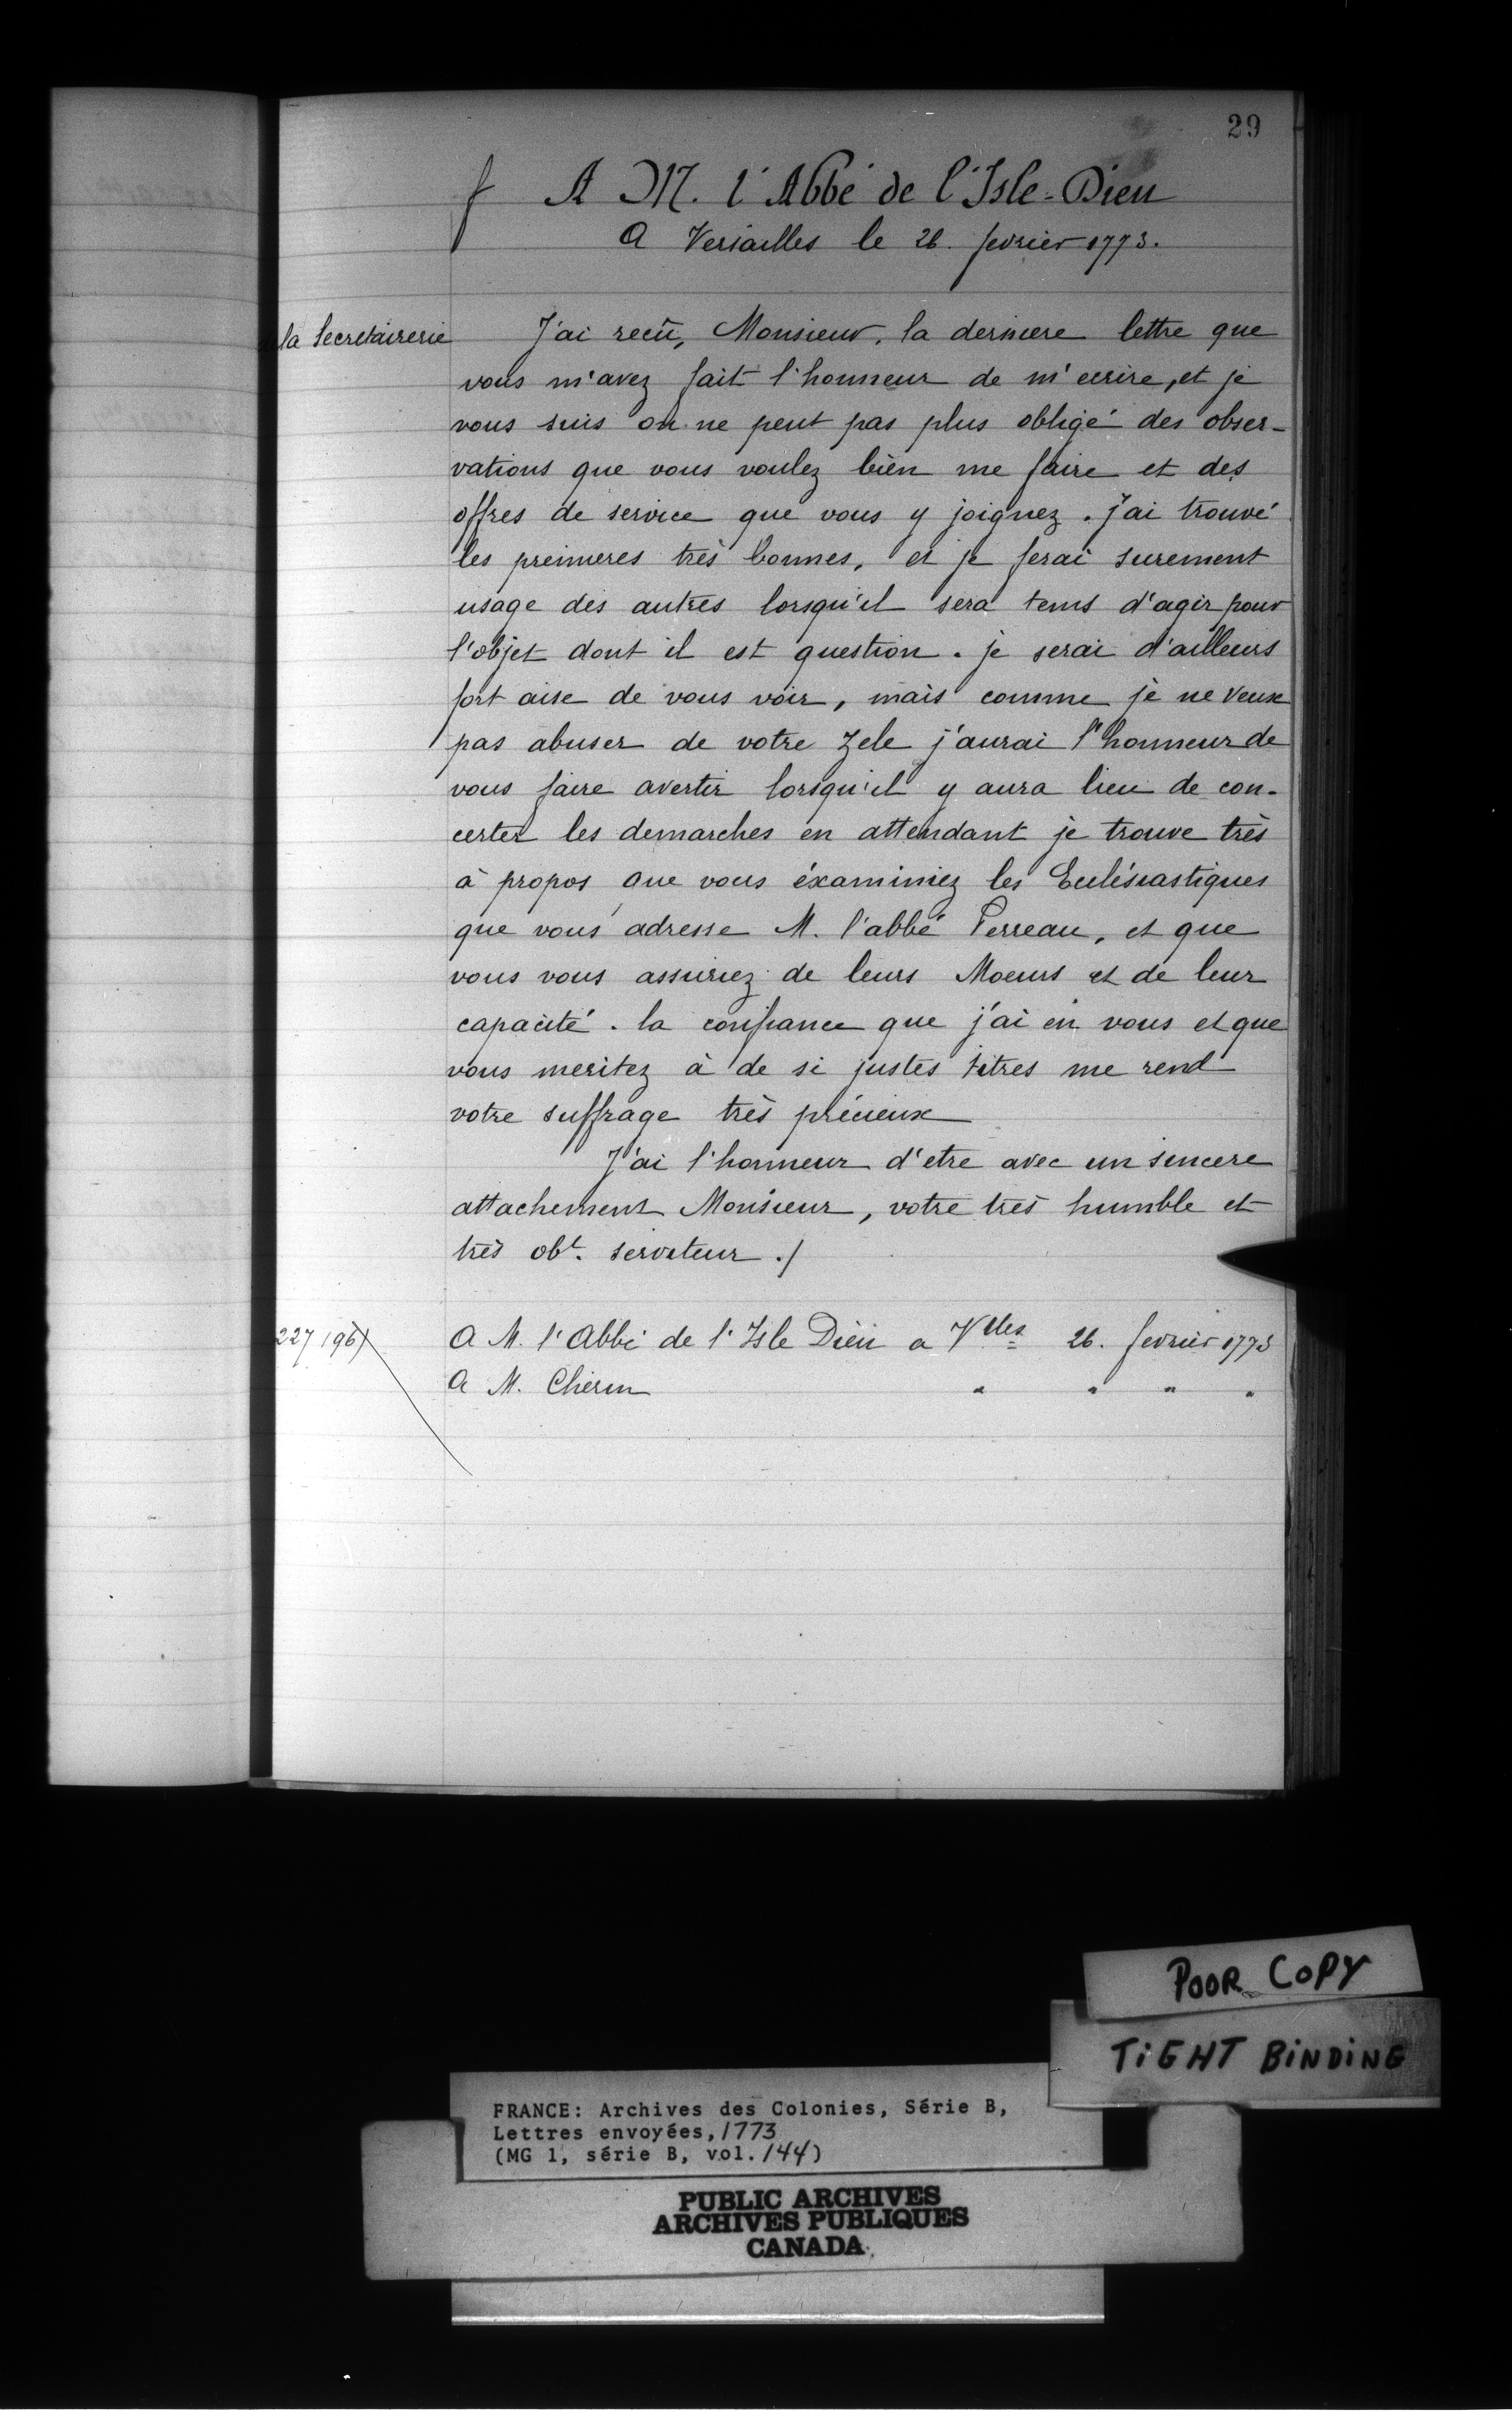 29
f A M. l'Abbé de l'Isle-Dieu
A Versailles le 26. fevrier 1773.
la Secretairerie
J'ai reçû, Monsieur, la derniere lettre que
vous m'avez fait l'honneur de m'ecrire, et je
vous suis on ne peut pas plus obligé des obser-
vations que vous voulez bien me faire et des
offres de service que vous y joignez. j'ai trouvé
les premieres très bonnes, et je ferai surement
usage des autres lorsqu'il sera tems d'agir pour
l'objet dont il est question. je serai d'ailleurs
fort aise de vous voir, mais comme je ne veux
pas abuser de votre Zele j'aurai l'honneur de
vous faire avertir lorsqu'il y aura lieu de con-
certer les demarches en attendant je trouve très
à propos que vous éxaminiez les Eccléiastiques
que vous adresse M. l'abbé Perreau, et que
vous vous assuriez de leurs Moeurs et de leur
capacité. la confiance que j'ai en vous et que
vous meritez à de si justes titres me rend
votre suffrage très précieux
J'ai l'honneur d'etre avec un sincere
attachement Monsieur, votre très humble et
très obt. serviteur ./
227 (96)
A M. l'Abbé de l'Isle Dieu a Vlles 26. fevrier 1773
A M. Cherin " " " "
POOR COPY
TIGHT BINDING
FRANCE: Archives des Colonies, Série B,
Lettres envoyées, 1773
(MG 1, série B, vol. 144)
PUBLIC ARCHIVES
ARCHIVES PUBLIQUES
CANADA